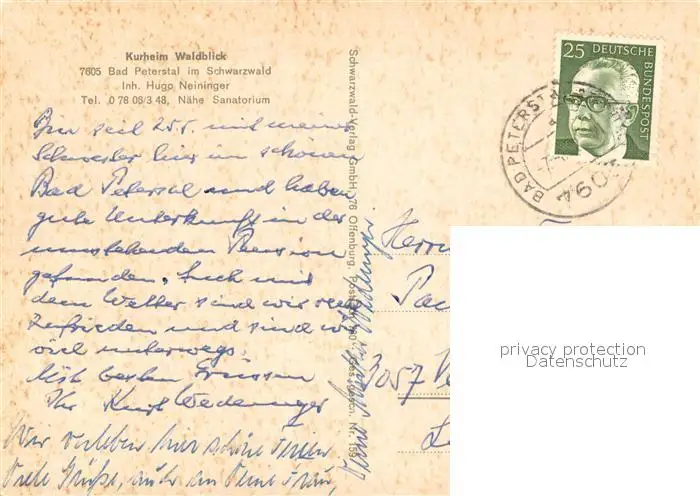 Kurheim Waldblick
7605 Bad Peterstal im Schwarzwald
Inh. Hugo Neininger
Tel. 0 78 06/3 48, Nähe Sanatorium
Bin seit 25.5. mit meiner
Schwester hier im schönen
Bad Peterstal und haben
gute Unterkunft in der
umstehenden Pension
gefunden. Auch mit
dem Wetter sind wir sehr
zufrieden und sind wir
viel unterwegs.
Mit besten Grüssen
Ihr Kurt
Wir verleben hier schöne Ferien
Viele Grüße, auch an Deine Frau,
Schwarzwald-Verlag GmbH, 76 Offenburg
25 DEUTSCHE
BUNDESPOST
BAD PETERST
760
Herrn
3057
privacy protection
Datenschutz